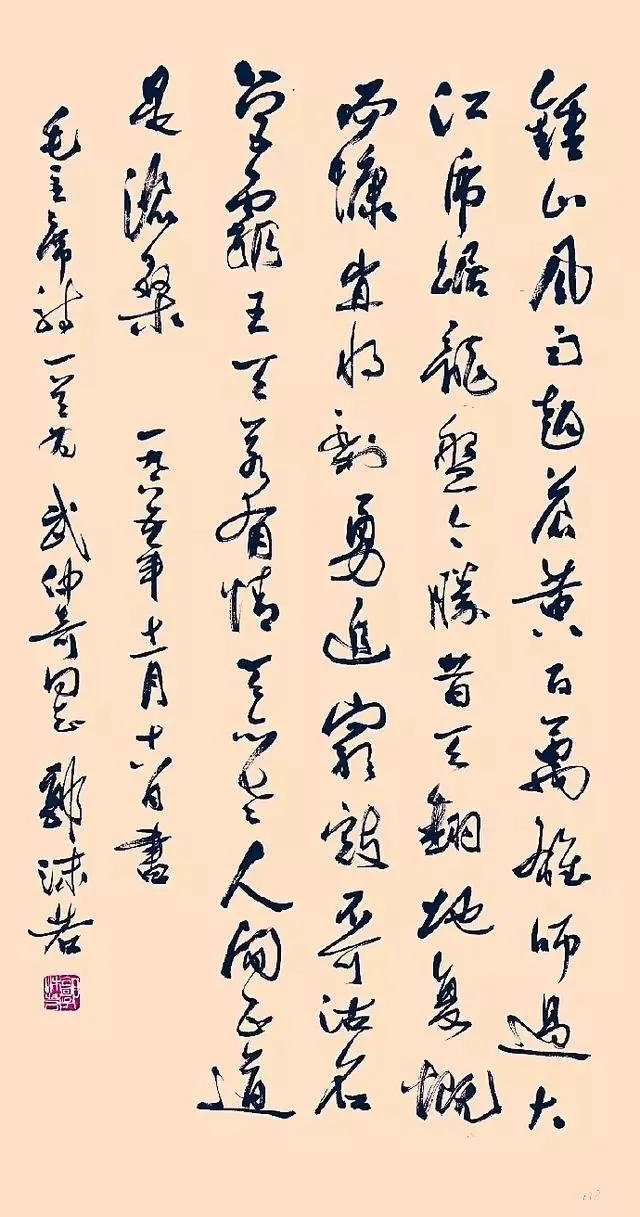 鍾山風雨起蒼黄百萬雄師過大
江虎踞龍盤今勝昔天翻地复慨
而慷宜將剩勇追窮寇不可沽名
學霸王天若有情天亦老人間正道
是滄桑 一九六五年 月 日書
毛主席詩一首為 武仲奇同志 郭沫若
郭沫若